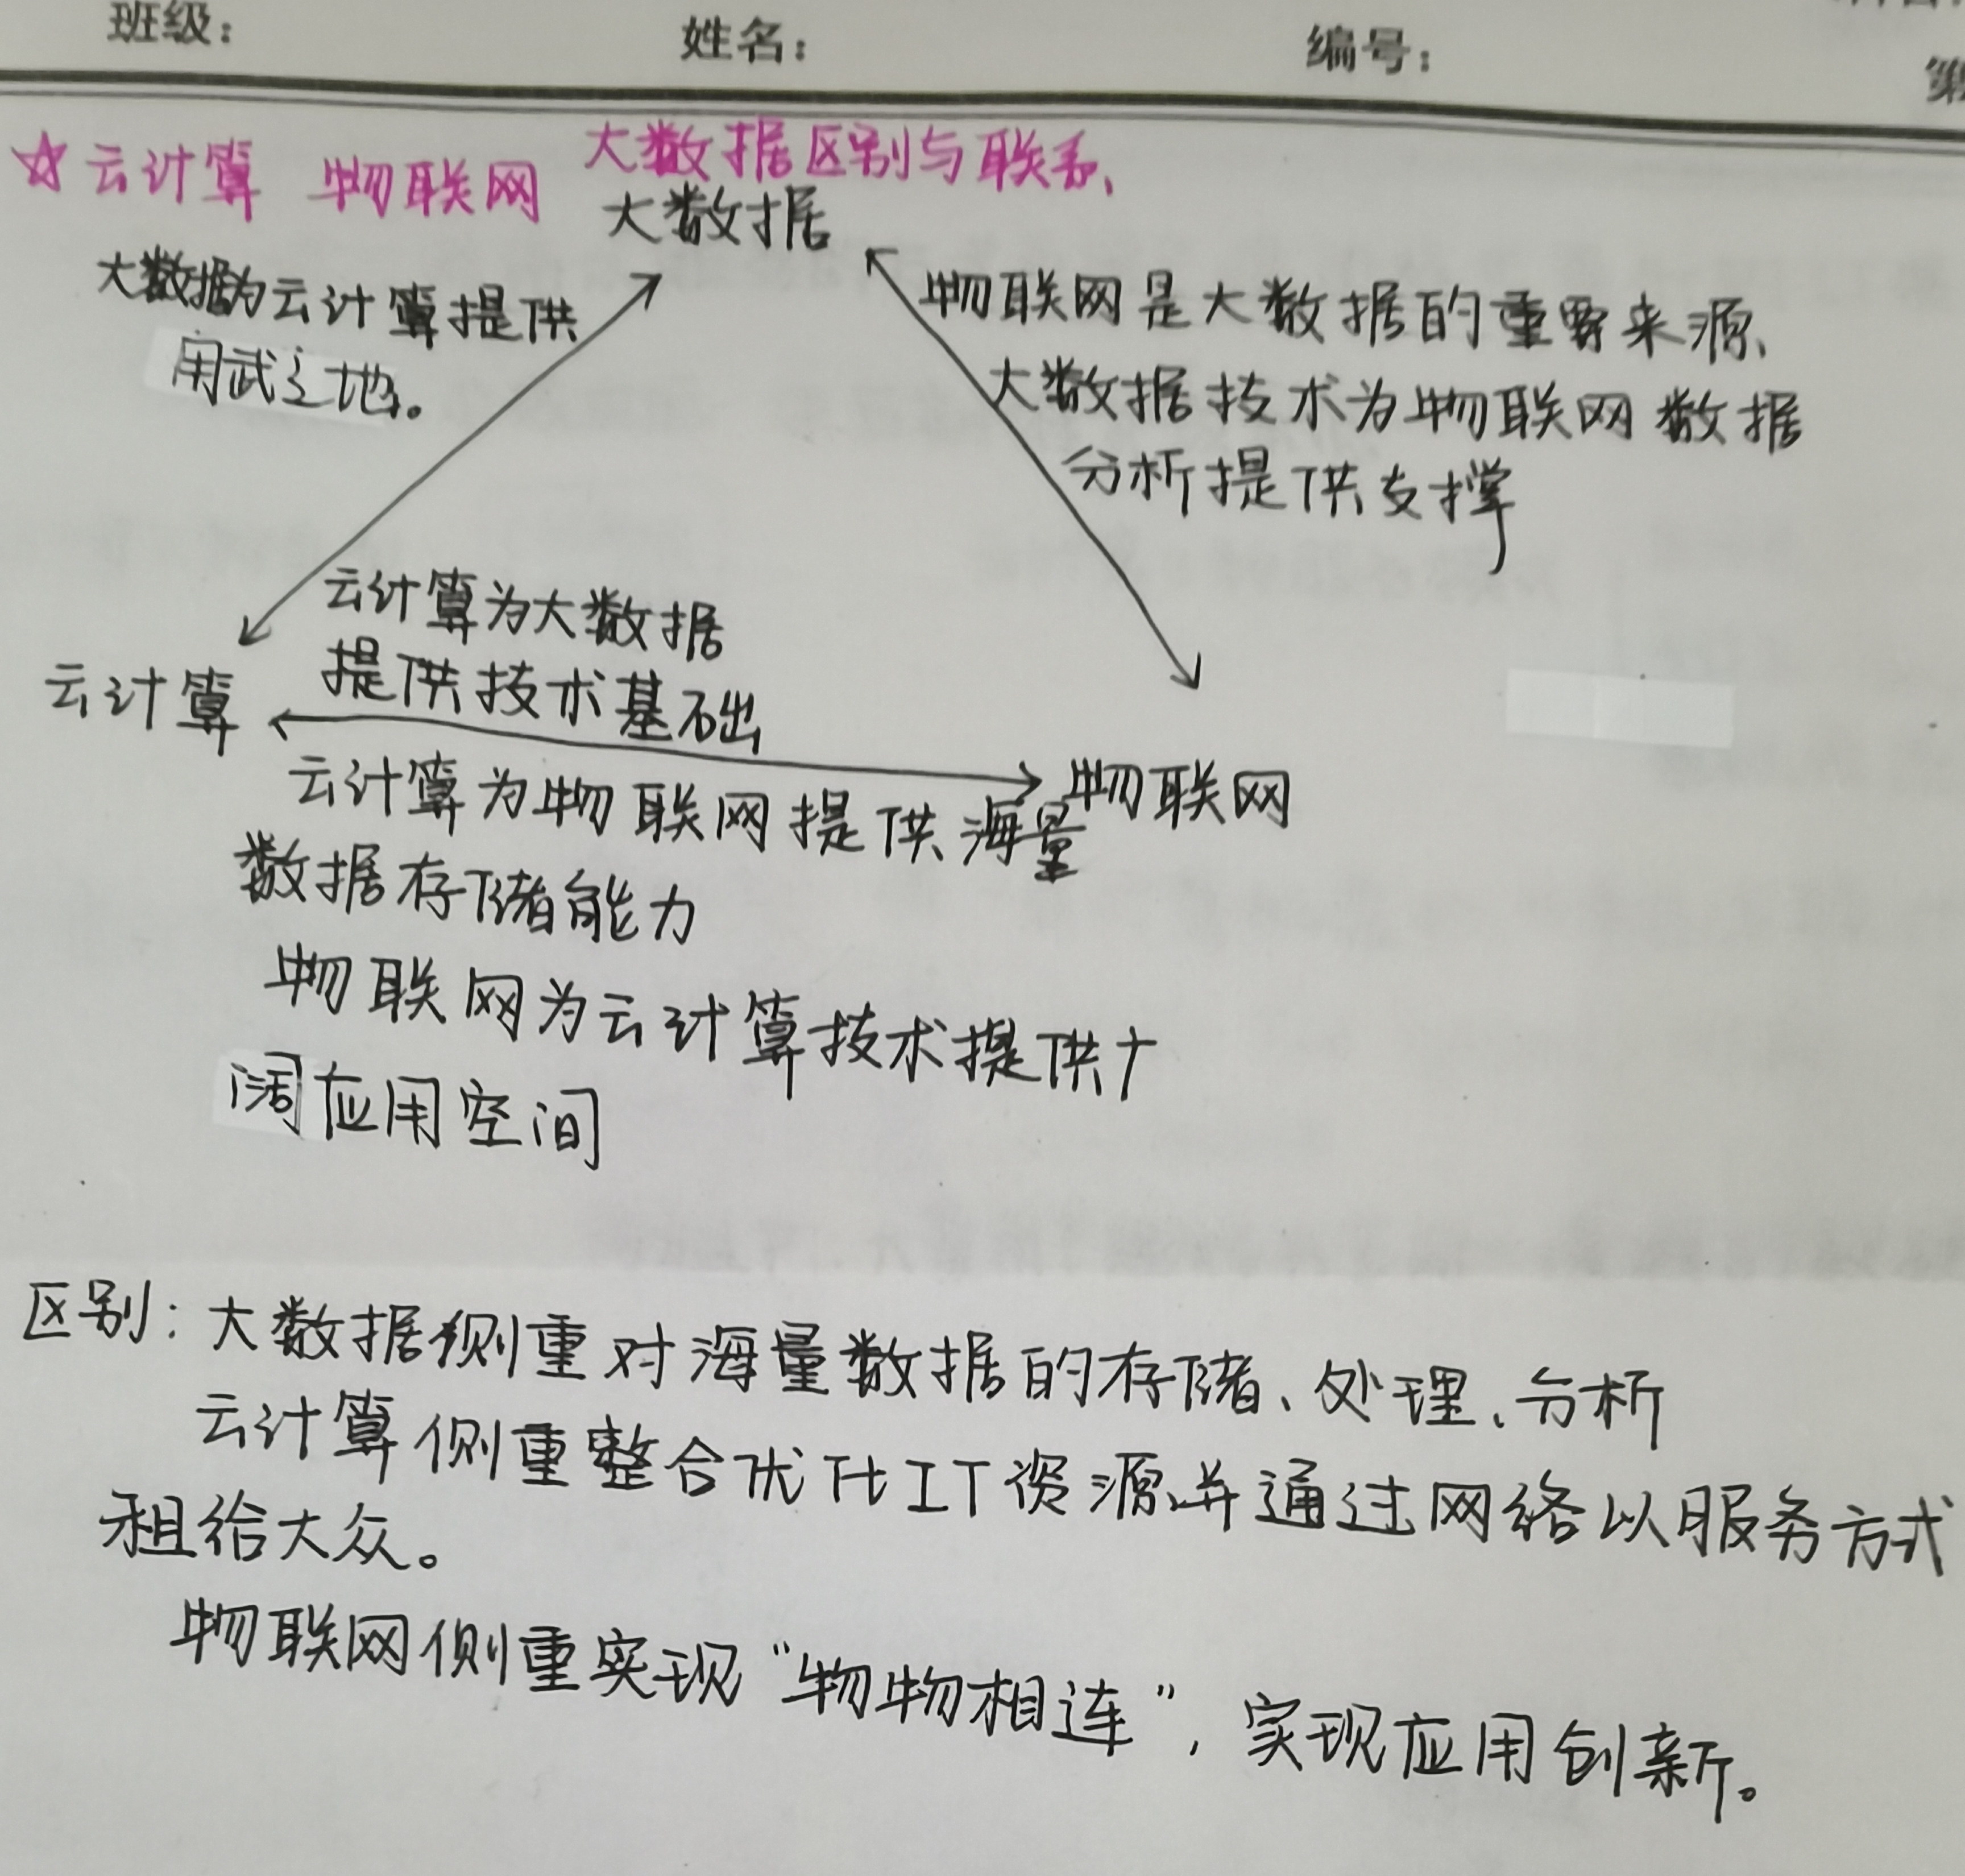 班级：
姓名：
编号：
☆云计算 物联网 大数据区别与联系、
大数据
大数据为云计算提供
用武之地。
物联网是大数据的重要来源、
大数据技术为物联网数据
分析提供支撑
云计算为大数据
提供技术基础
云计算
物联网
云计算为物联网提供海量
数据存储能力
物联网为云计算技术提供广
阔应用空间
区别：大数据侧重对海量数据的存储、处理、分析
云计算侧重整合优化IT资源并通过网络以服务方式
租给大众。
物联网侧重实现“物物相连”，实现应用创新。